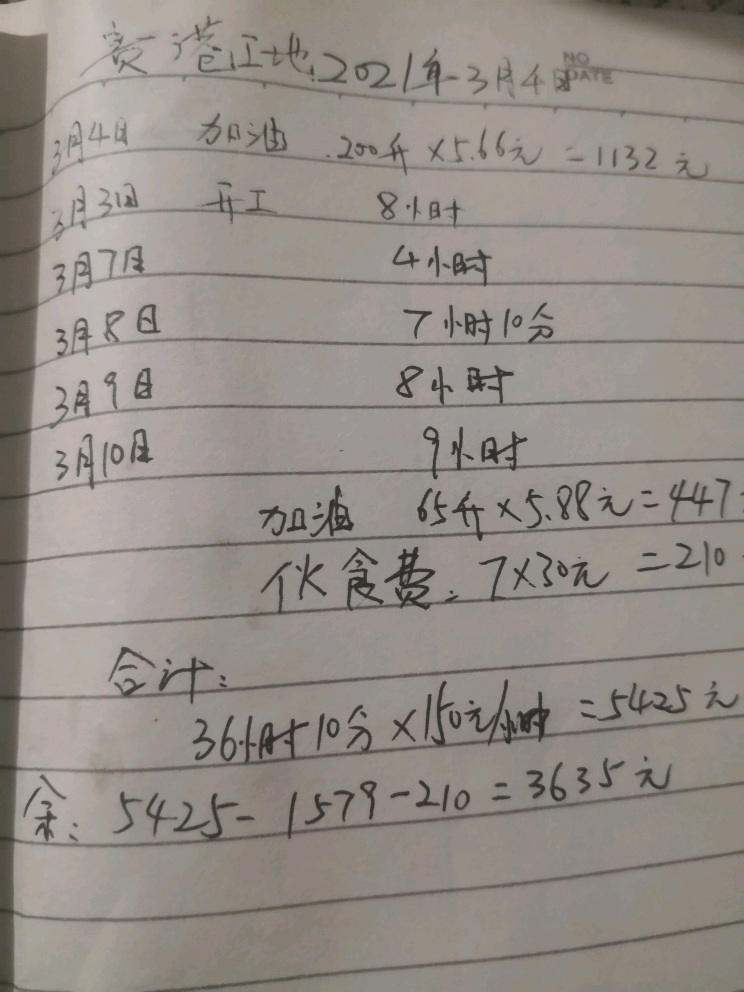 贵港工地.2021年-3月4日
NO
DATE
3月4日 加油 .200升×5.66元=1132元
3月3日 开工 8小时
3月7日 4小时
3月8日 7小时10分
3月9日 8小时
3月10日 9小时
加油 65升×5.88元=447
伙食费: 7×30元=210
合计:
36小时10分×150元/小时=5425元
余: 5425-1579-210=3635元